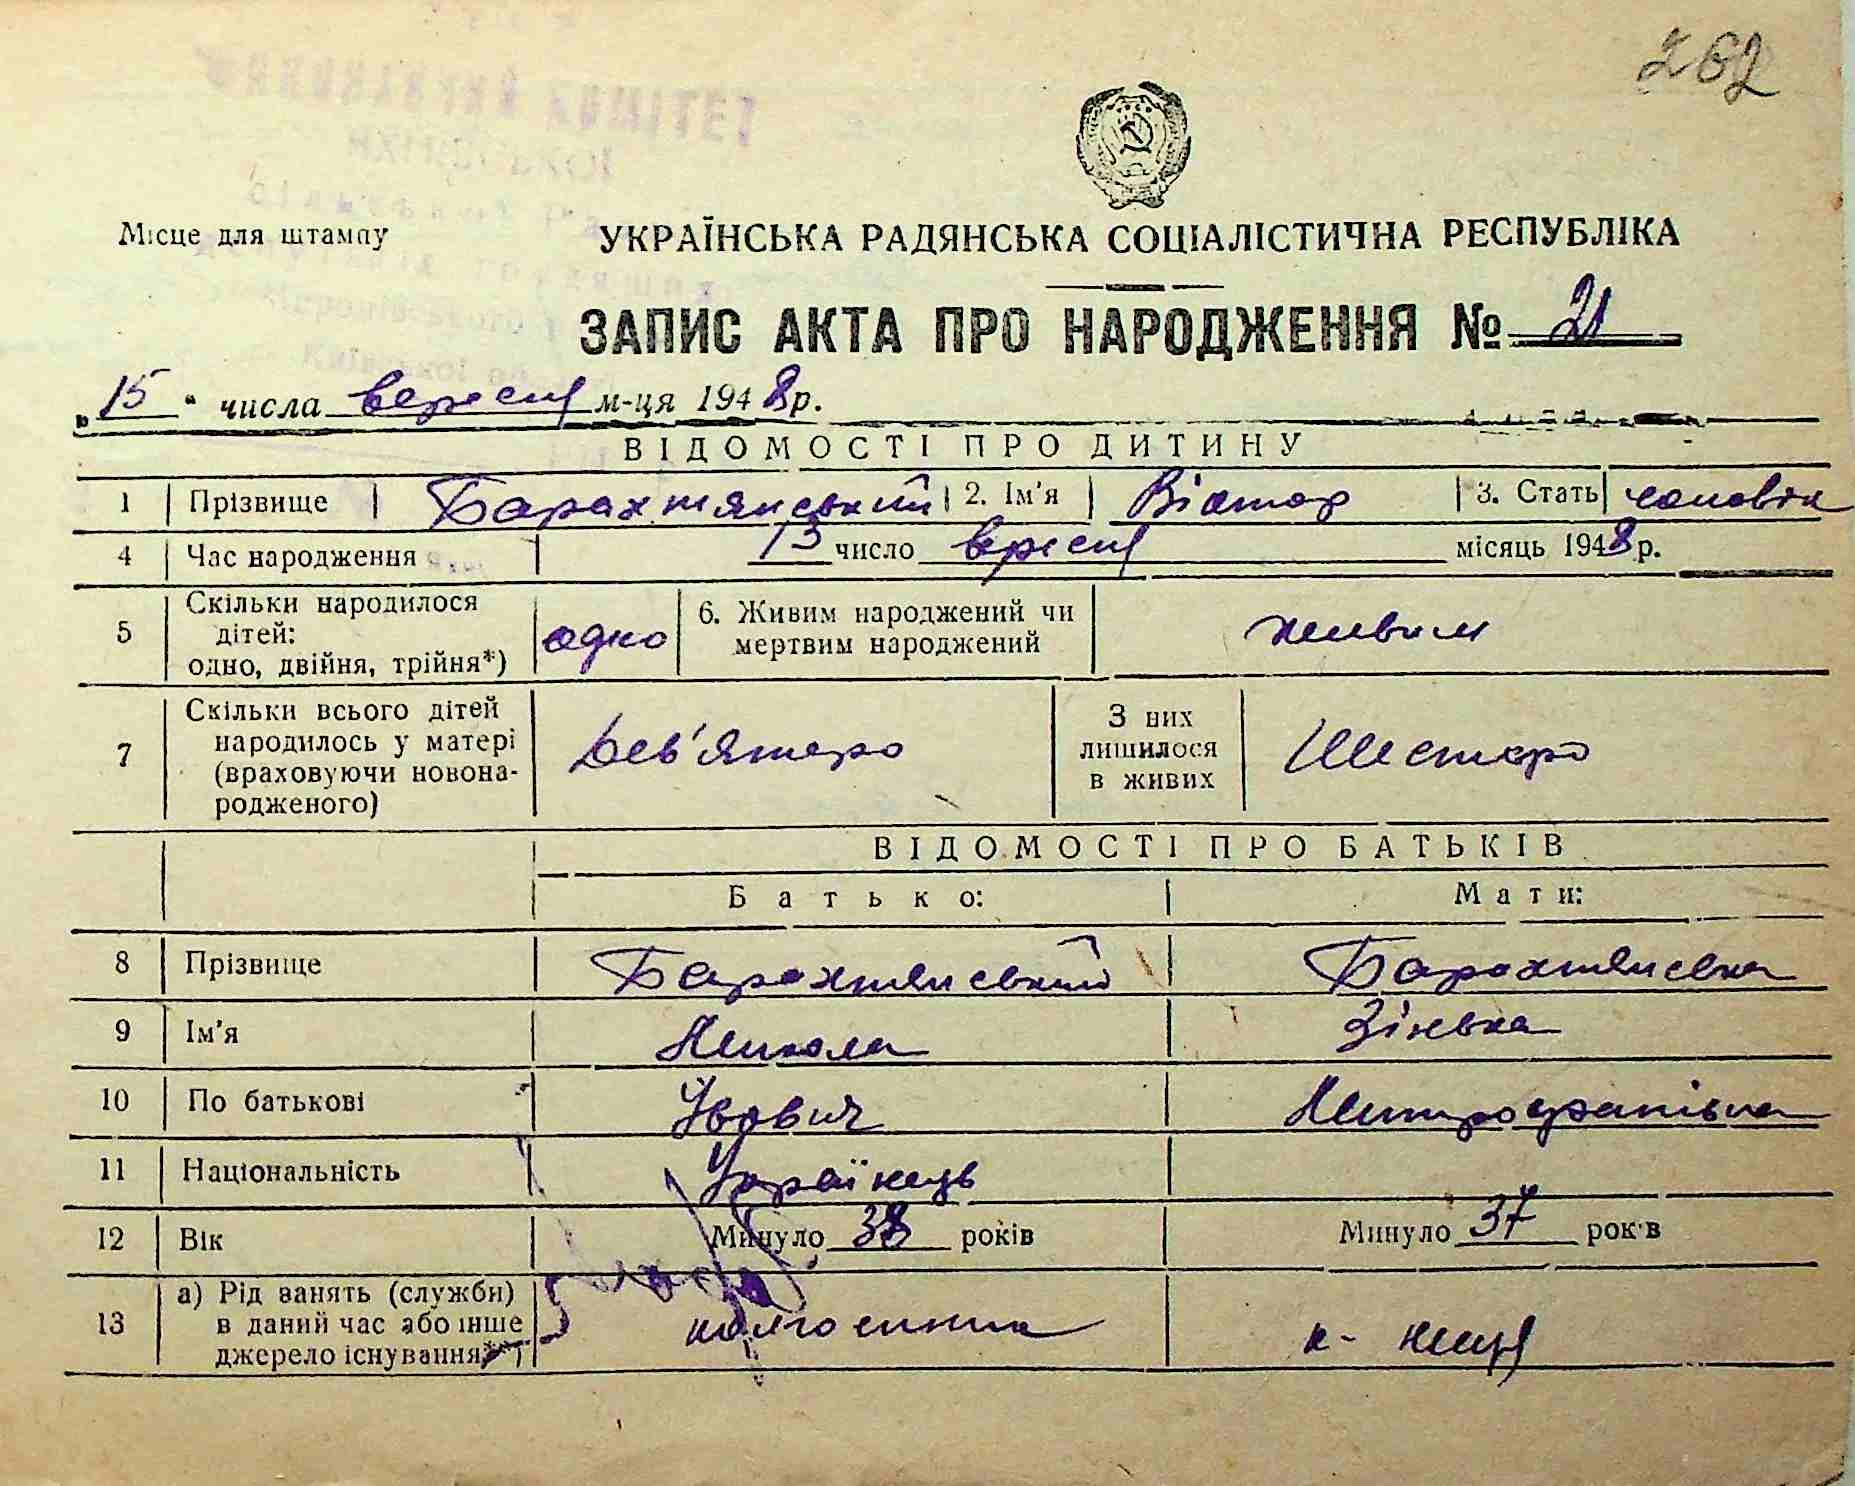 262
ВИКОНАВЧИЙ КОМІТЕТ
Місце для штампу
УКРАЇНСЬКА РАДЯНСЬКА СОЦІАЛІСТИЧНА РЕСПУБЛІКА
ЗАПИС АКТА ПРО НАРОДЖЕННЯ № 21
„15" числа вересня м-ця 1948 р.
ВІДОМОСТІ ПРО ДИТИНУ
1 Прізвище Барахтянський 2. Ім'я Віктор 3. Стать чоловік
4 Час народження 13 число вересня місяць 1948 р.
5 Скільки народилося дітей: одно, двійня, трійня*) одно 6. Живим народжений чи мертвим народжений живим
7 Скільки всього дітей народилось у матері (враховуючи новонародженого) Дев'ятеро З них лишилося в живих Шестеро
ВІДОМОСТІ ПРО БАТЬКІВ
Батько: Мати:
8 Прізвище Барахтянський Барахтянська
9 Ім'я Микола Зінька
10 По батькові Увович Митрофанівна
11 Національність Українець
12 Вік Минуло 38 років Минуло 37 років
13 а) Рід занять (служби) в даний час або інше джерело існування**) колгоспник к-ниця